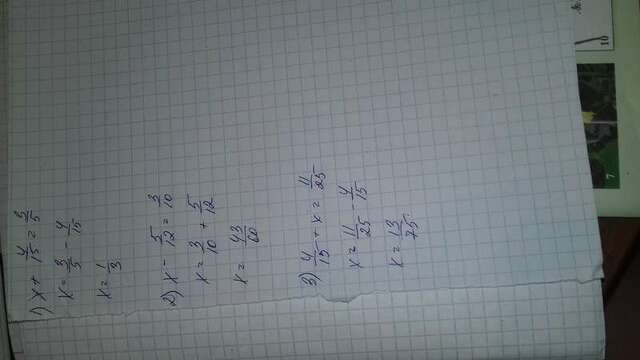 1) x + 4/15 = 3/5
x = 3/5 - 4/15
x = 1/3
2) x - 5/12 = 3/10
x = 3/10 + 5/12
x = 43/60
3) 4/15 + x = 11/25
x = 11/25 - 4/15
x = 13/75
7
10